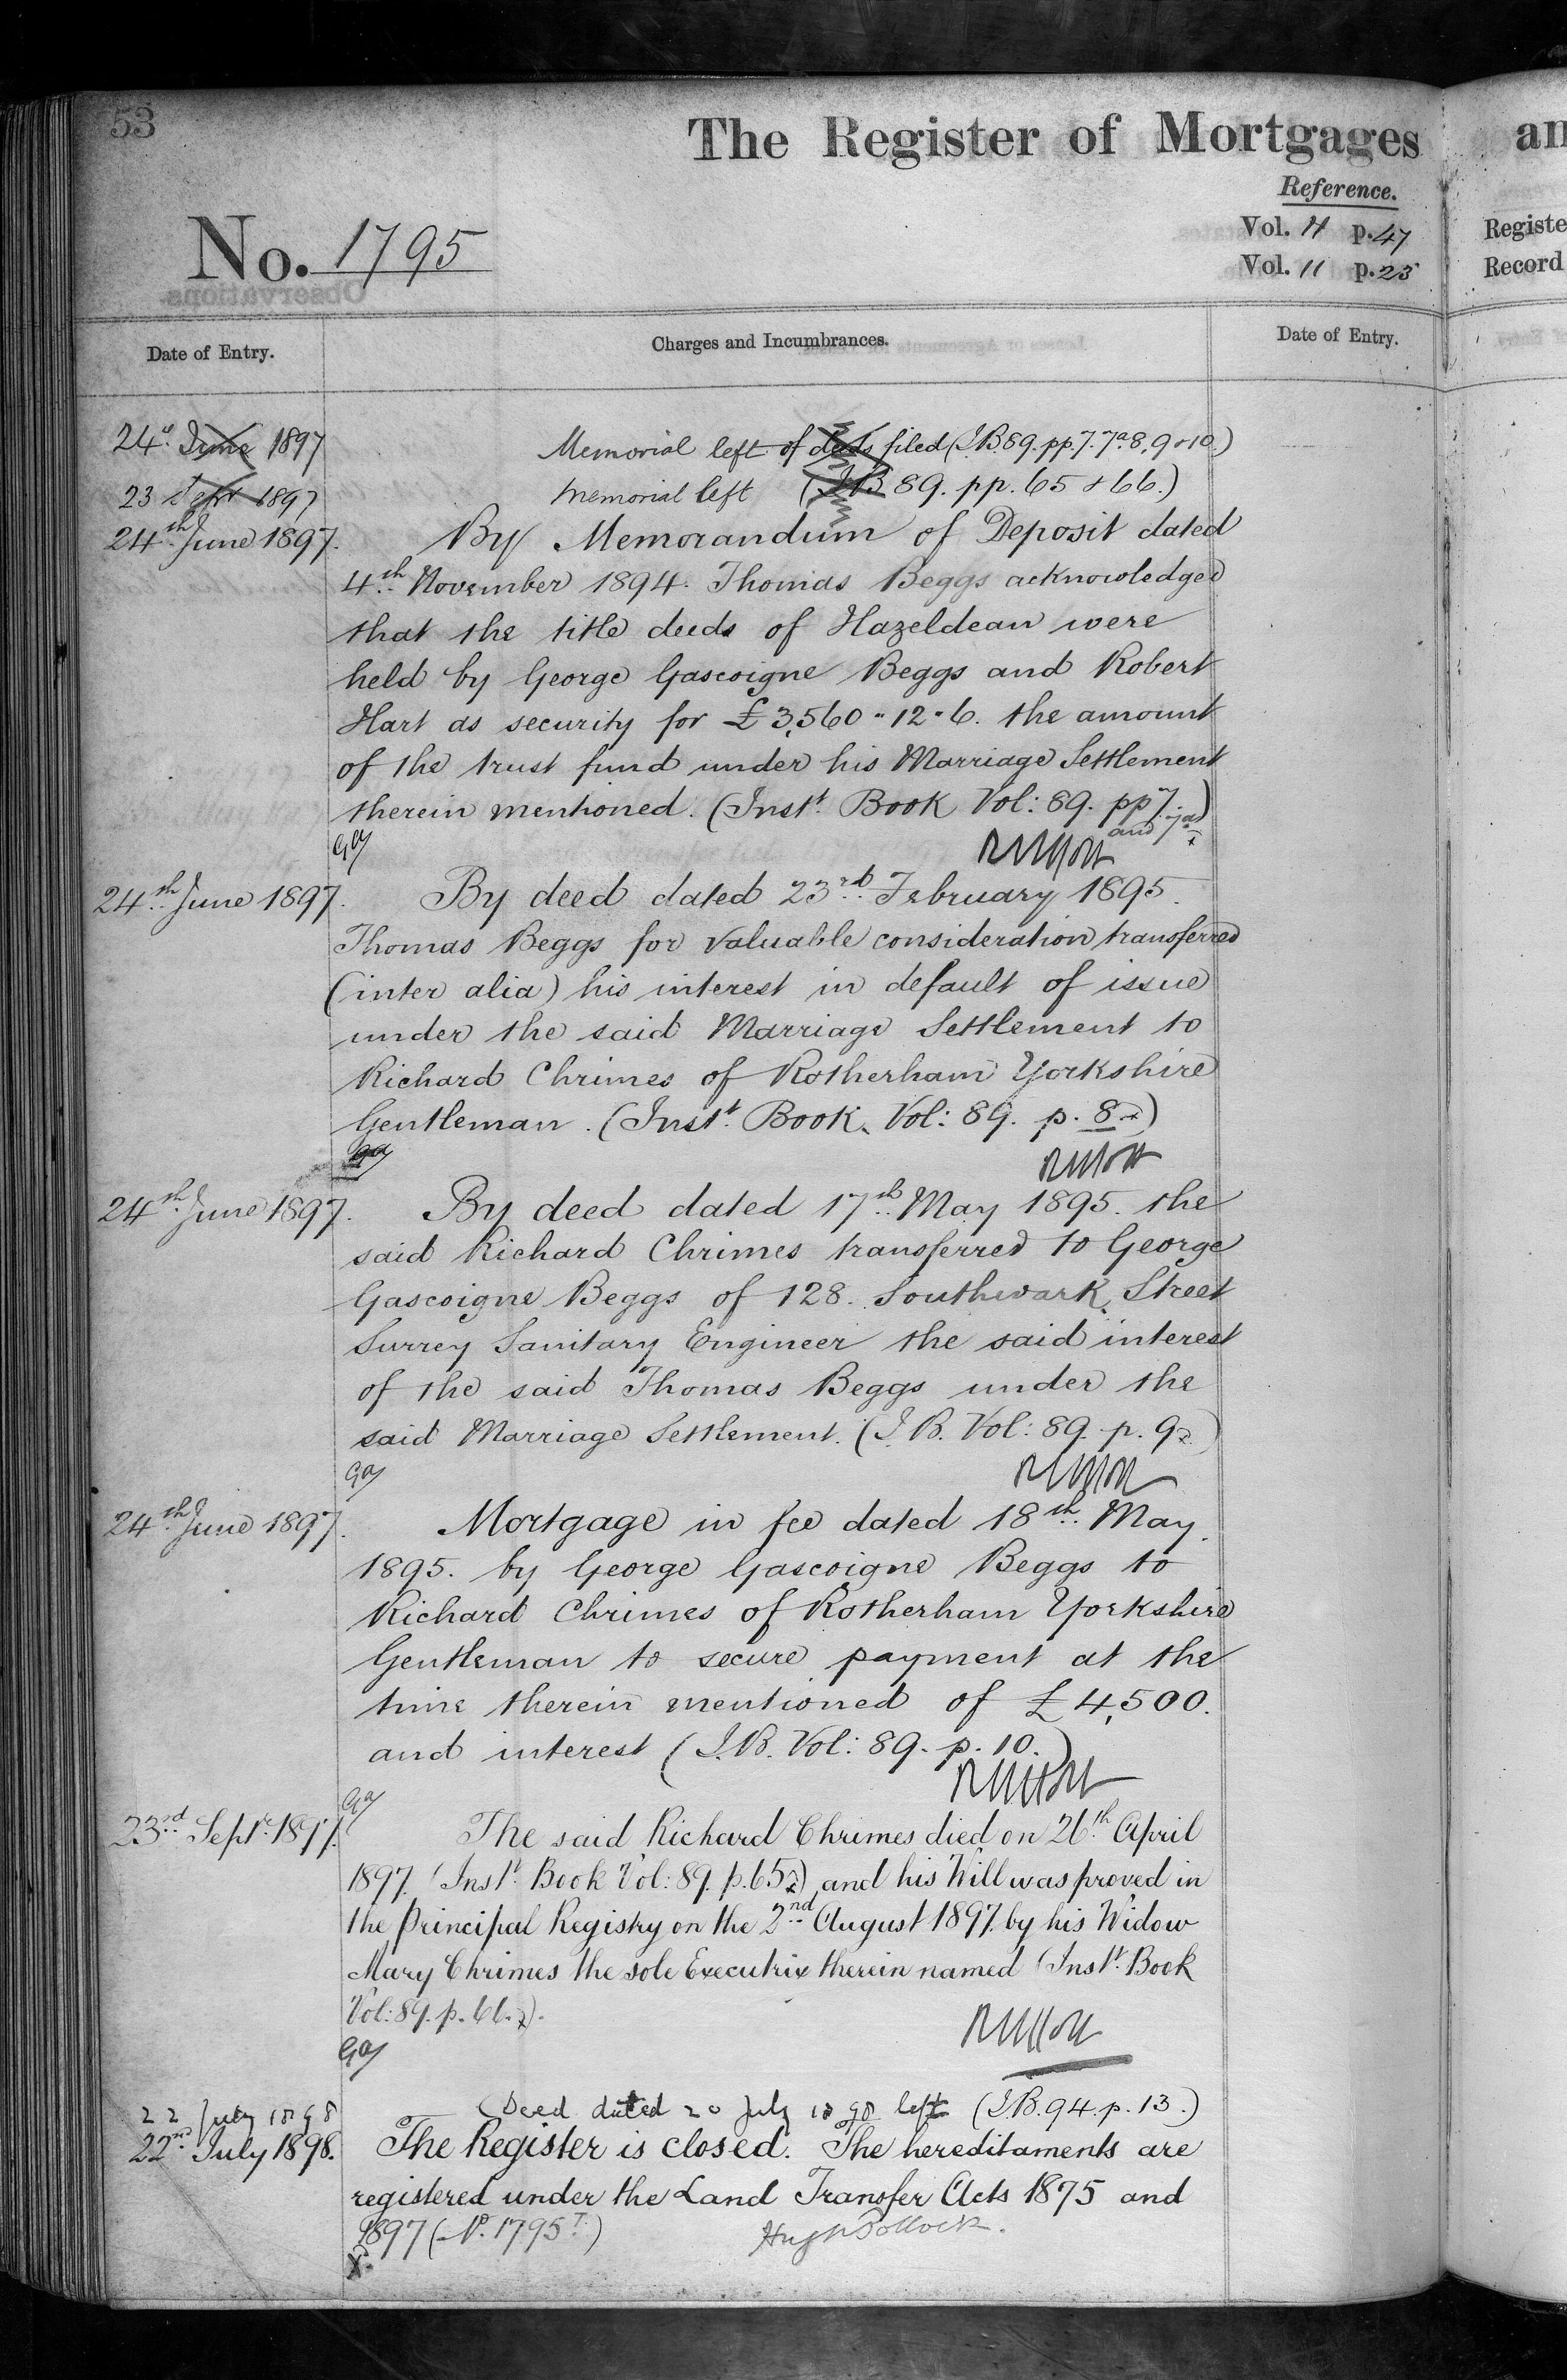 53
The Register of Mortgages
an
Reference.
Vol. 11 p. 47
Vol. 11 p. 23
Registe
Record
No. 1795
Observations.
Date of Entry.
Charges and Incumbrances.
Date of Entry.
24th June 1897
Memorial left of deeds filed (I.B. 89. pp. 7. 7a. 8, 9 & 10.)
23 Sept 1897
Memorial left (I.B 89. pp. 65 & 66.)
24th June 1897.
By Memorandum of Deposit dated
4th November 1894. Thomas Beggs acknowledged
that the title deeds of Hazeldean were
held by George Gascoigne Beggs and Robert
Hart as security for £3,560 " 12 " 6. the amount
of the trust fund under his Marriage Settlement
therein mentioned. (Inst. Book Vol: 89. pp 7.)
and 7a
24th June 1897.
By deed dated 23rd February 1895.
Thomas Beggs for valuable consideration transferred
(inter alia) his interest in default of issue
under the said Marriage Settlement to
Richard Chrimes of Rotherham Yorkshire
Gentleman. (Inst. Book. Vol: 89. p. 8.)
24th June 1897.
By deed dated 17th May 1895. the
said Richard Chrimes transferred to George
Gascoigne Beggs of 128. Southwark Street
Surrey Sanitary Engineer the said interest
of the said Thomas Beggs under the
said Marriage Settlement. (I.B. Vol: 89. p. 9.)
24th June 1897.
Mortgage in fee dated 18th May
1895. by George Gascoigne Beggs to
Richard Chrimes of Rotherham Yorkshire
Gentleman to secure payment at the
time therein mentioned of £4,500.
and interest (I.B. Vol: 89. p. 10.)
23rd Septr 1897.
The said Richard Chrimes died on 26th April
1897. (Inst. Book Vol: 89. p. 65.) and his Will was proved in
the Principal Registry on the 2nd August 1897. by his Widow
Mary Chrimes the sole Executrix therein named (Inst. Book
Vol: 89. p. 66.).
22 July 1898
Deed dated 20 July 1898 left (I.B. 94. p. 13.)
22nd July 1898.
The Register is closed. The hereditaments are
registered under the Land Transfer Acts 1875 and
1897 (No. 1795T)
Hugh Pollock.